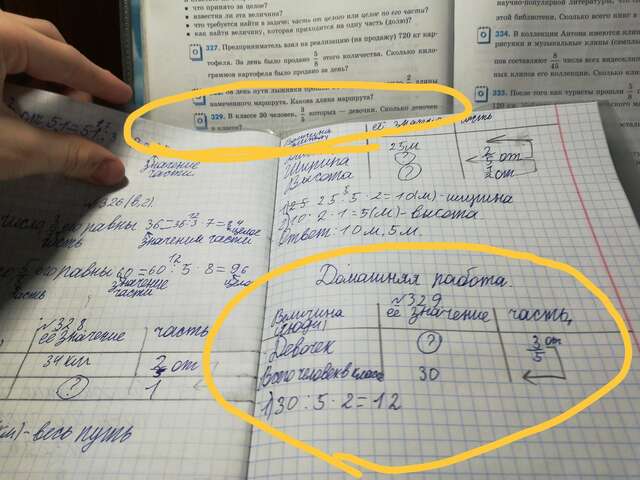 что принято за целое?
известна ли эта величина?
что требуется найти в задаче: часть от целого или целое по его части?
как найти величину, которая приходится на одну часть (долю)?
327. Предприниматель взял на реализацию (на продажу) 720 кар-
тофеля. За день было продано 5/8 этого количества. Сколько кило-
граммов картофеля было продано за день?
намеченного маршрута. Какова длина маршрута?
329. В классе 30 человек, 3/5 которых — девочки. Сколько девочек
в классе?
научно-популярной литературы,
этой библиотеки. Сколько всего книг
334. В коллекции Антона имеются
рисунки и музыкальные клипы
пов составляют 8/45 всех
клипов его коллекции. Сколько
335. После того как туристы прошли
значение
части
№326(в,г)
число
часть
равны 36=36:3·7=84
значение части
целое
равны 60=60:5·8=96
значение
части
№328
её значение часть
34 км 2/5 от
? 1
весь путь
её значение часть
25м
Ширина ?
Высота ?
5·2=10(м)-ширина
10:2·1=5(м)-высота
Ответ: 10м, 5м.
Домашняя работа.
№329
Величина её значение часть
(люди)
Девочек ? 3/5 от
Всего человек в классе 30
1) 30:5·2=12